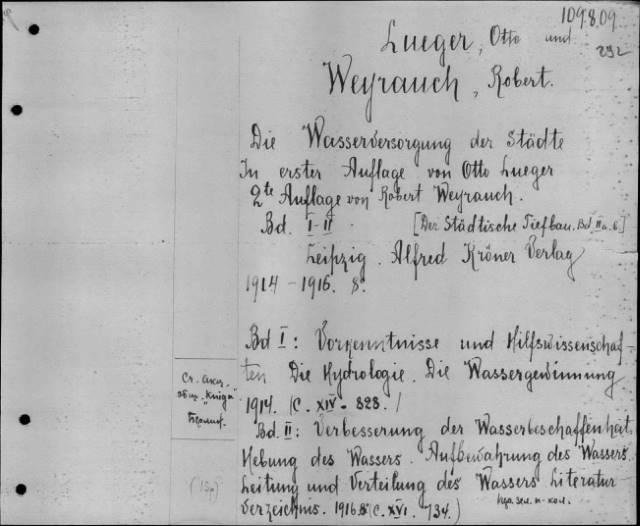 109.8.09
Lueger, Otto und
292
Weyrauch, Robert.
Die Wasserversorgung der Städte
In erster Auflage von Otto Lueger
2te Auflage von Robert Weyrauch.
Bd. I-II [Der Städtische Tiefbau. Bd. II a. b]
Leipzig. Alfred Kröner Verlag
1914-1916. 8°.
Bd I: Vorkenntnisse und Hilfswissenschaf-
ten Die Hydrologie. Die Wassergewinnung
1914. (C. XIV - 828. /
Bd. II: Verbesserung der Wasserbeschaffenheit.
Hebung des Wassers. Aufbewahrung des Wassers
Leitung und Verteilung des Wassers Literatur
Verzeichnis. 1916. 8 (C. XVI. 734.)
Ст. Акц.
общ. "Книга"